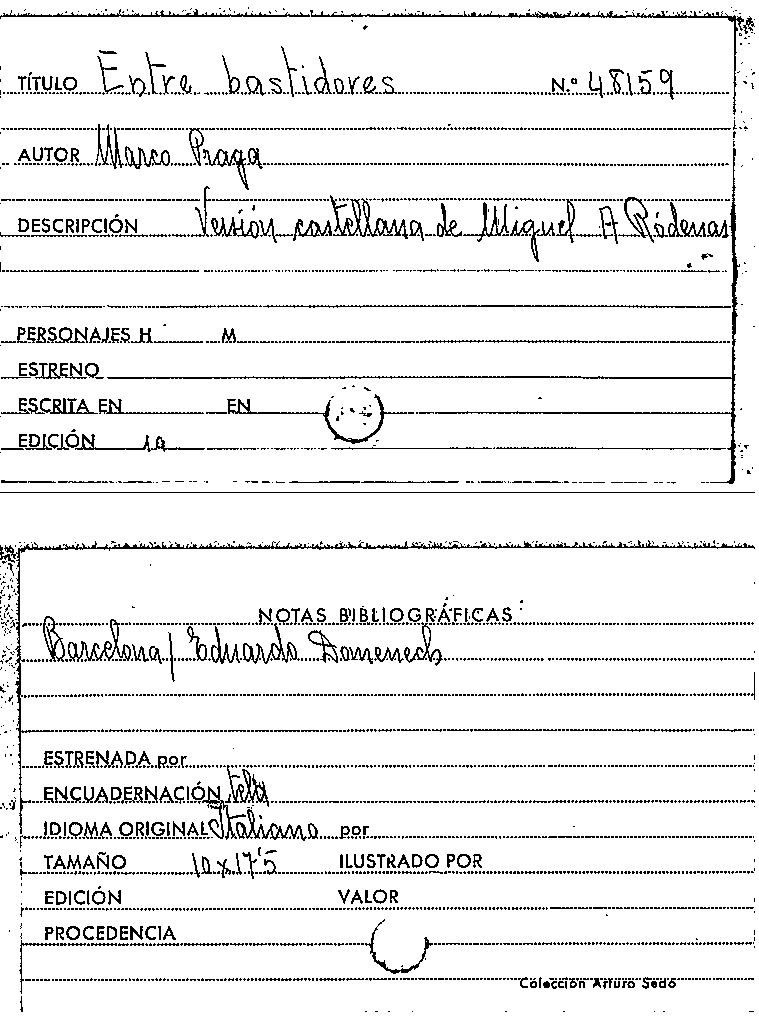 TÍTULO Entre bastidores N.º 48159
AUTOR Marco Praga
DESCRIPCIÓN Versión castellana de Miguel A Ródenas
PERSONAJES H M
ESTRENO
ESCRITA EN EN
EDICIÓN 1a
NOTAS BIBLIOGRÁFICAS
Barcelona / Eduardo Domenech
ESTRENADA por
ENCUADERNACIÓN tela
IDIOMA ORIGINAL Italiano por
TAMAÑO 10x17'5 ILUSTRADO POR
EDICIÓN VALOR
PROCEDENCIA
Colección Arturo Sedó